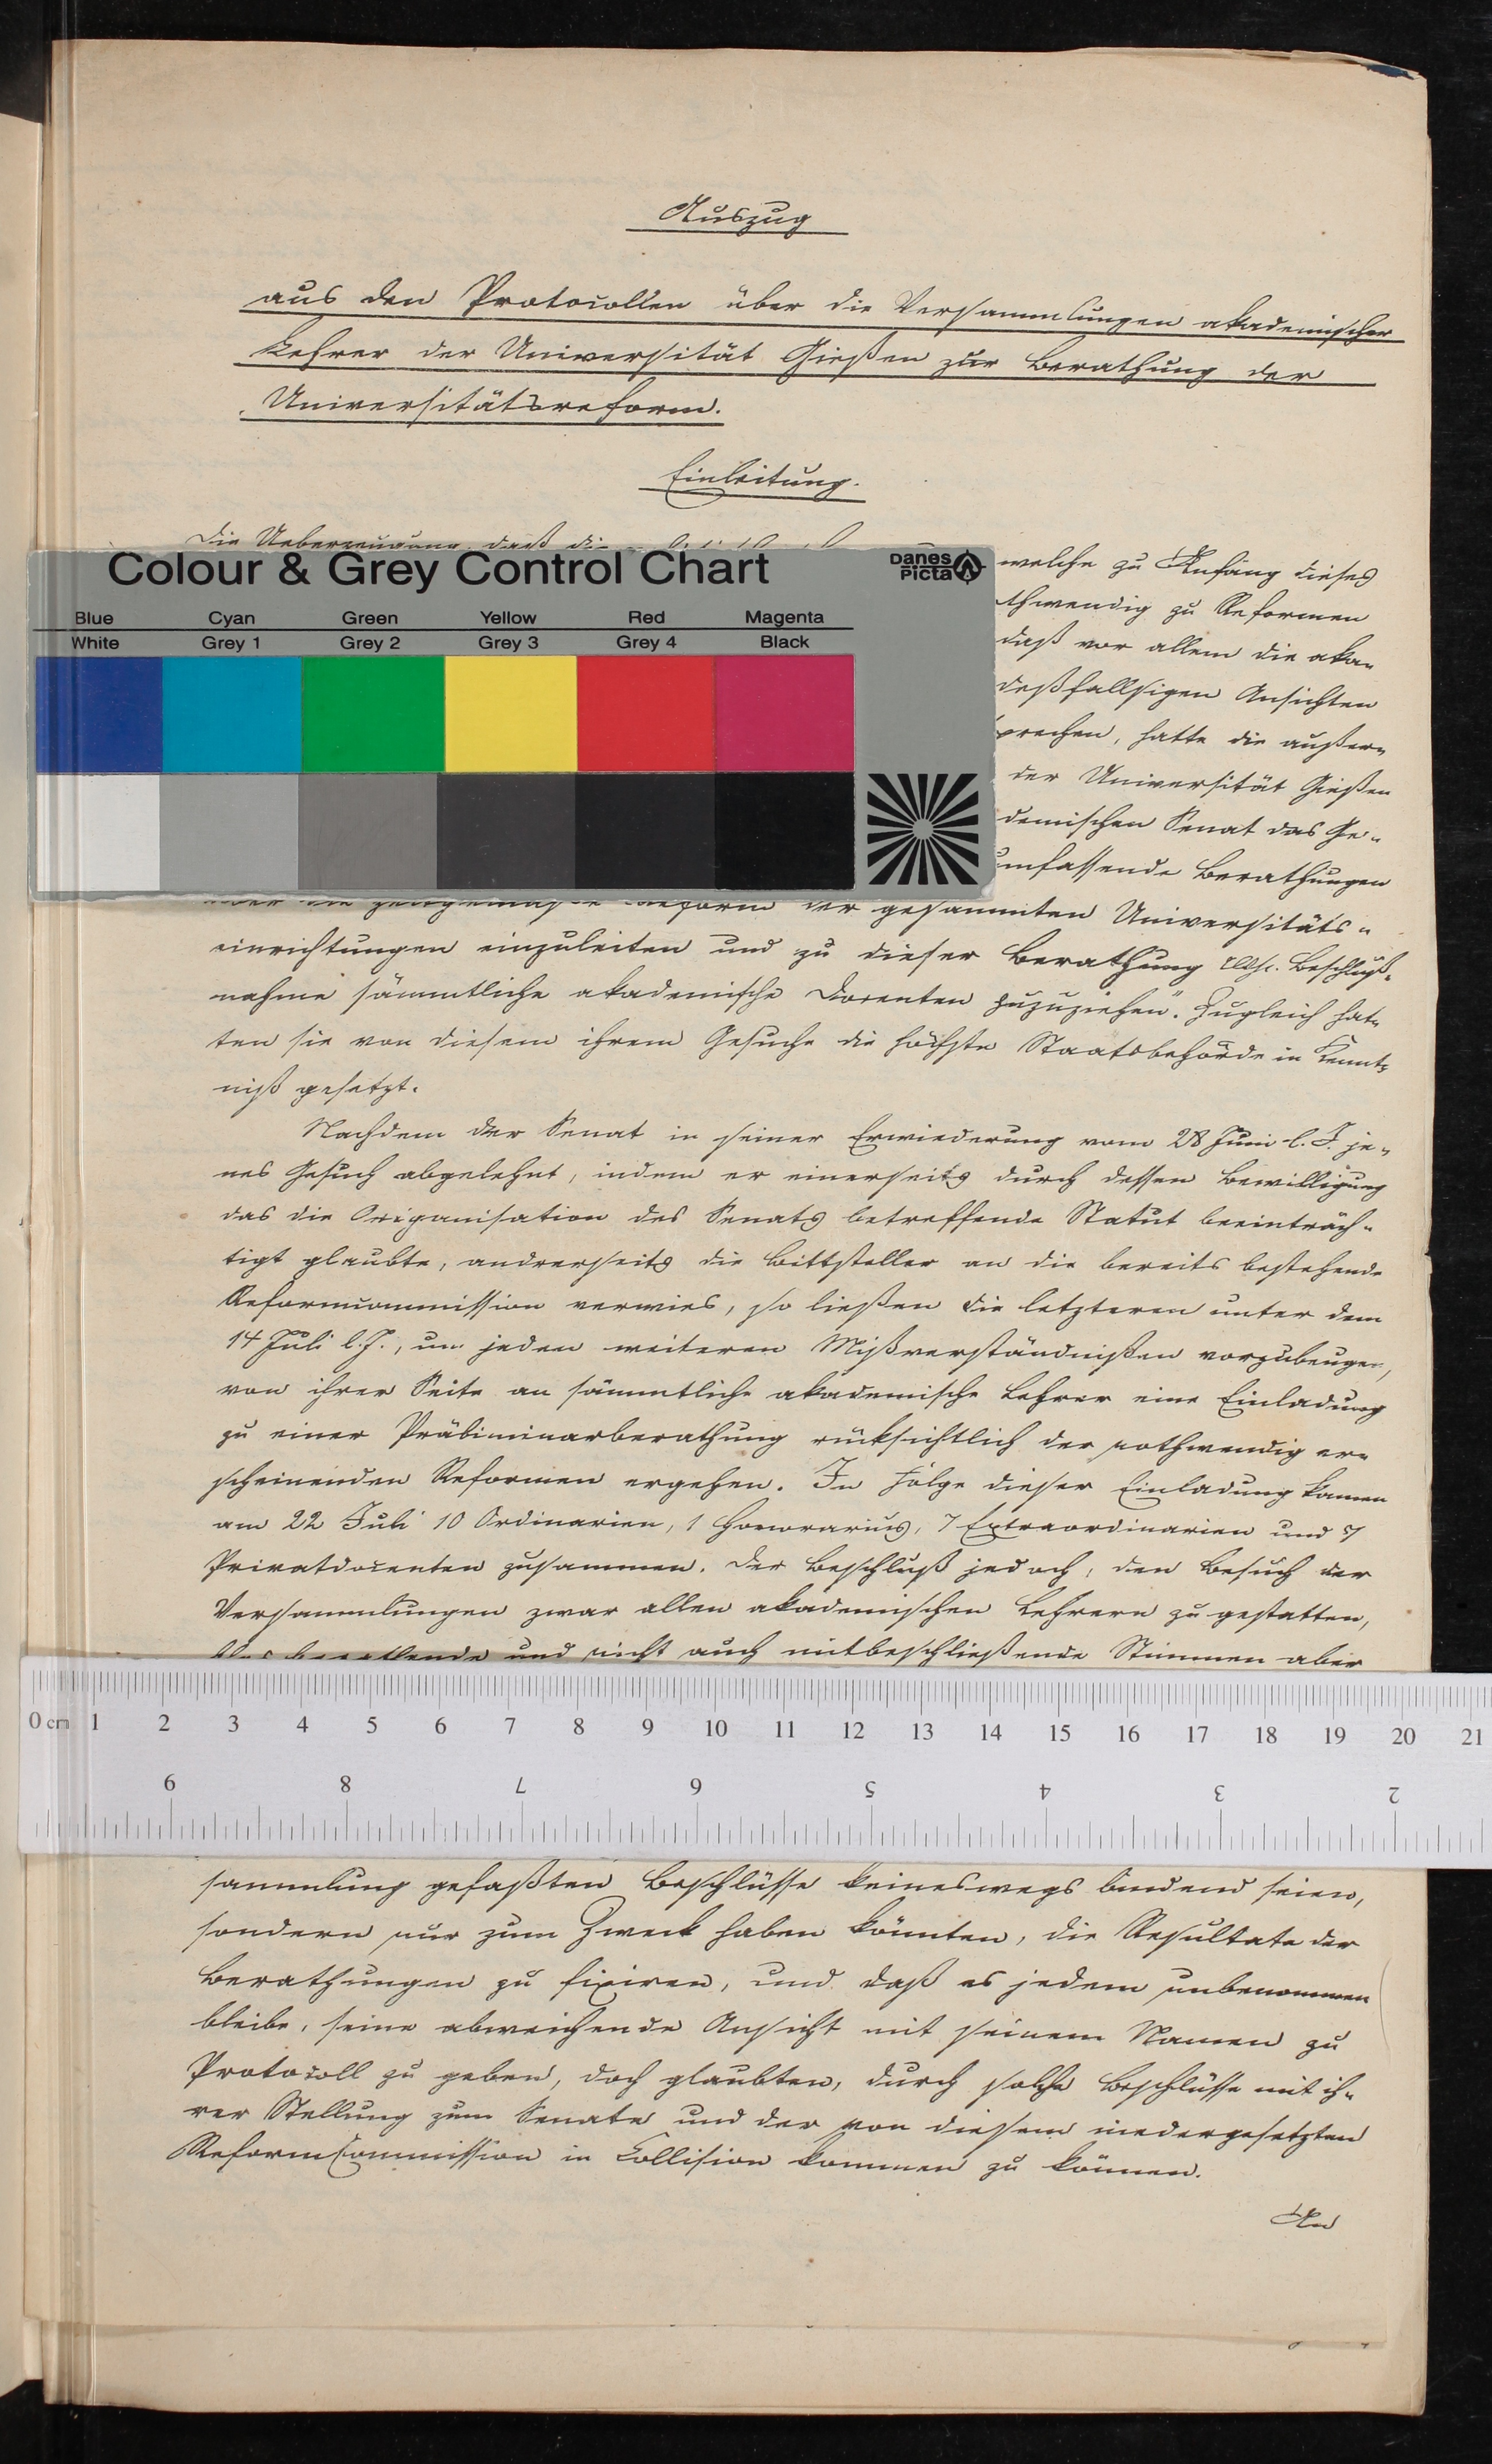 Auszug
aus den Protocollen über die Versammlungen akademischer
Lehrer der Universität Gießen zur Berathung der
Universitätsreform.
Einleitung.
Die Ueberzeugung, daß die
welche zu Anfang dieses
thwendig zu Reformen
daß vor allem die aka-
deßfallsigen Ansichten
sprechen, hatte die außer-
der Universität Gießen
demischen Senat das Ge-
umfassende Berathungen
Colour & Grey Control Chart
Danes
Picta
Blue Cyan Green Yellow Red Magenta
White Grey 1 Grey 2 Grey 3 Grey 4 Black
über die zeitgemäße Reform der gesammten Universitäts-
einrichtungen einzuleiten und zu dieser Berathung resp. Beschluß-
nahme sämmtliche akademische Docenten zuzuziehen". Zugleich hat-
ten sie von diesem ihrem Gesuche die höchste Staatsbehörde in Kennt-
niß gesetzt.
Nachdem der Senat in seiner Erwiederung vom 28 Juni l. J. je-
nes Gesuch abgelehnt, indem er einerseits durch dessen Bewilligung
das die Origanisation des Senats betreffende Statut beeinträch-
tigt glaubte, andrerseits die Bittsteller an die bereits bestehende
Reformcommission verwies, so ließen die letzteren unter dem
14 Juli l. J., um jeden weiteren Mißverständnißen vorzubeugen,
von ihrer Seite an sämmtliche akademische Lehrer eine Einladung
zu einer Präliminarberathung rücksichtlich der nothwendig er-
scheinenden Reformen ergehen. In Folge dieser Einladung kamen
am 22 Juli 10 Ordinarien, 1 Honorarius, 7 Extraordinarien und 7
Privatdocenten zusammen. Der Beschluß jedoch, den Besuch der
Versammlungen zwar allen akademischen Lehrern zu gestatten,
und nicht auch mitbeschließende Stimmen aber
0 cm 1 2 3 4 5 6 7 8 9 10 11 12 13 14 15 16 17 18 19 20 21
9 8 7 6 5 4 3 2
sammlung gefaßten Beschlüsse keineswegs bindend seien,
sondern nur zum Zweck haben könnten, die Resultate der
Berathungen zu fixiren, und daß es jedem unbenommen
bleibe, seine abweichende Ansicht mit seinem Namen zu
Protocoll zu geben, doch glaubten, durch solche Beschlüsse mit ih-
rer Stellung zum Senate und der von diesem niedergesetzten
ReformCommission in Collision kommen zu können.
An